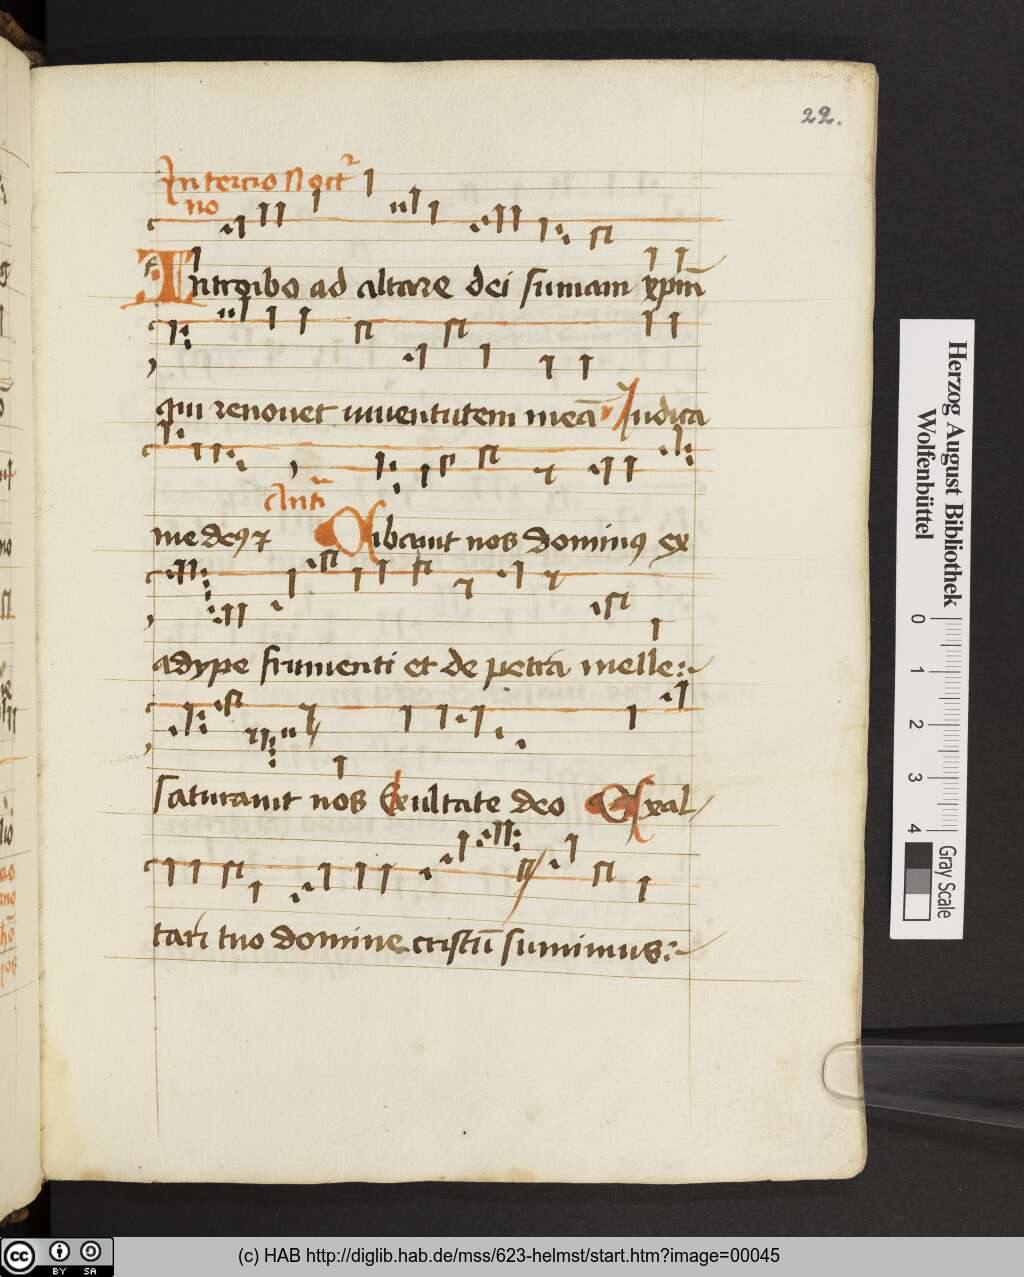 22.
In tercio Noct
no
Introibo ad altare dei sumam xpm̄
qui renouet iuuentutem meā Iudica
me deꝰ
Antͥ
Cibauit nos dominꝰ ex
adype frumenti et de petra melle:
saturauit nos Exultate deo Exal
tari tuo domine cristū sumimus:
Herzog August Bibliothek
Wolfenbüttel
0 1 2 3 4
Gray Scale
cc BY SA
(c) HAB http://diglib.hab.de/mss/623-helmst/start.htm?image=00045